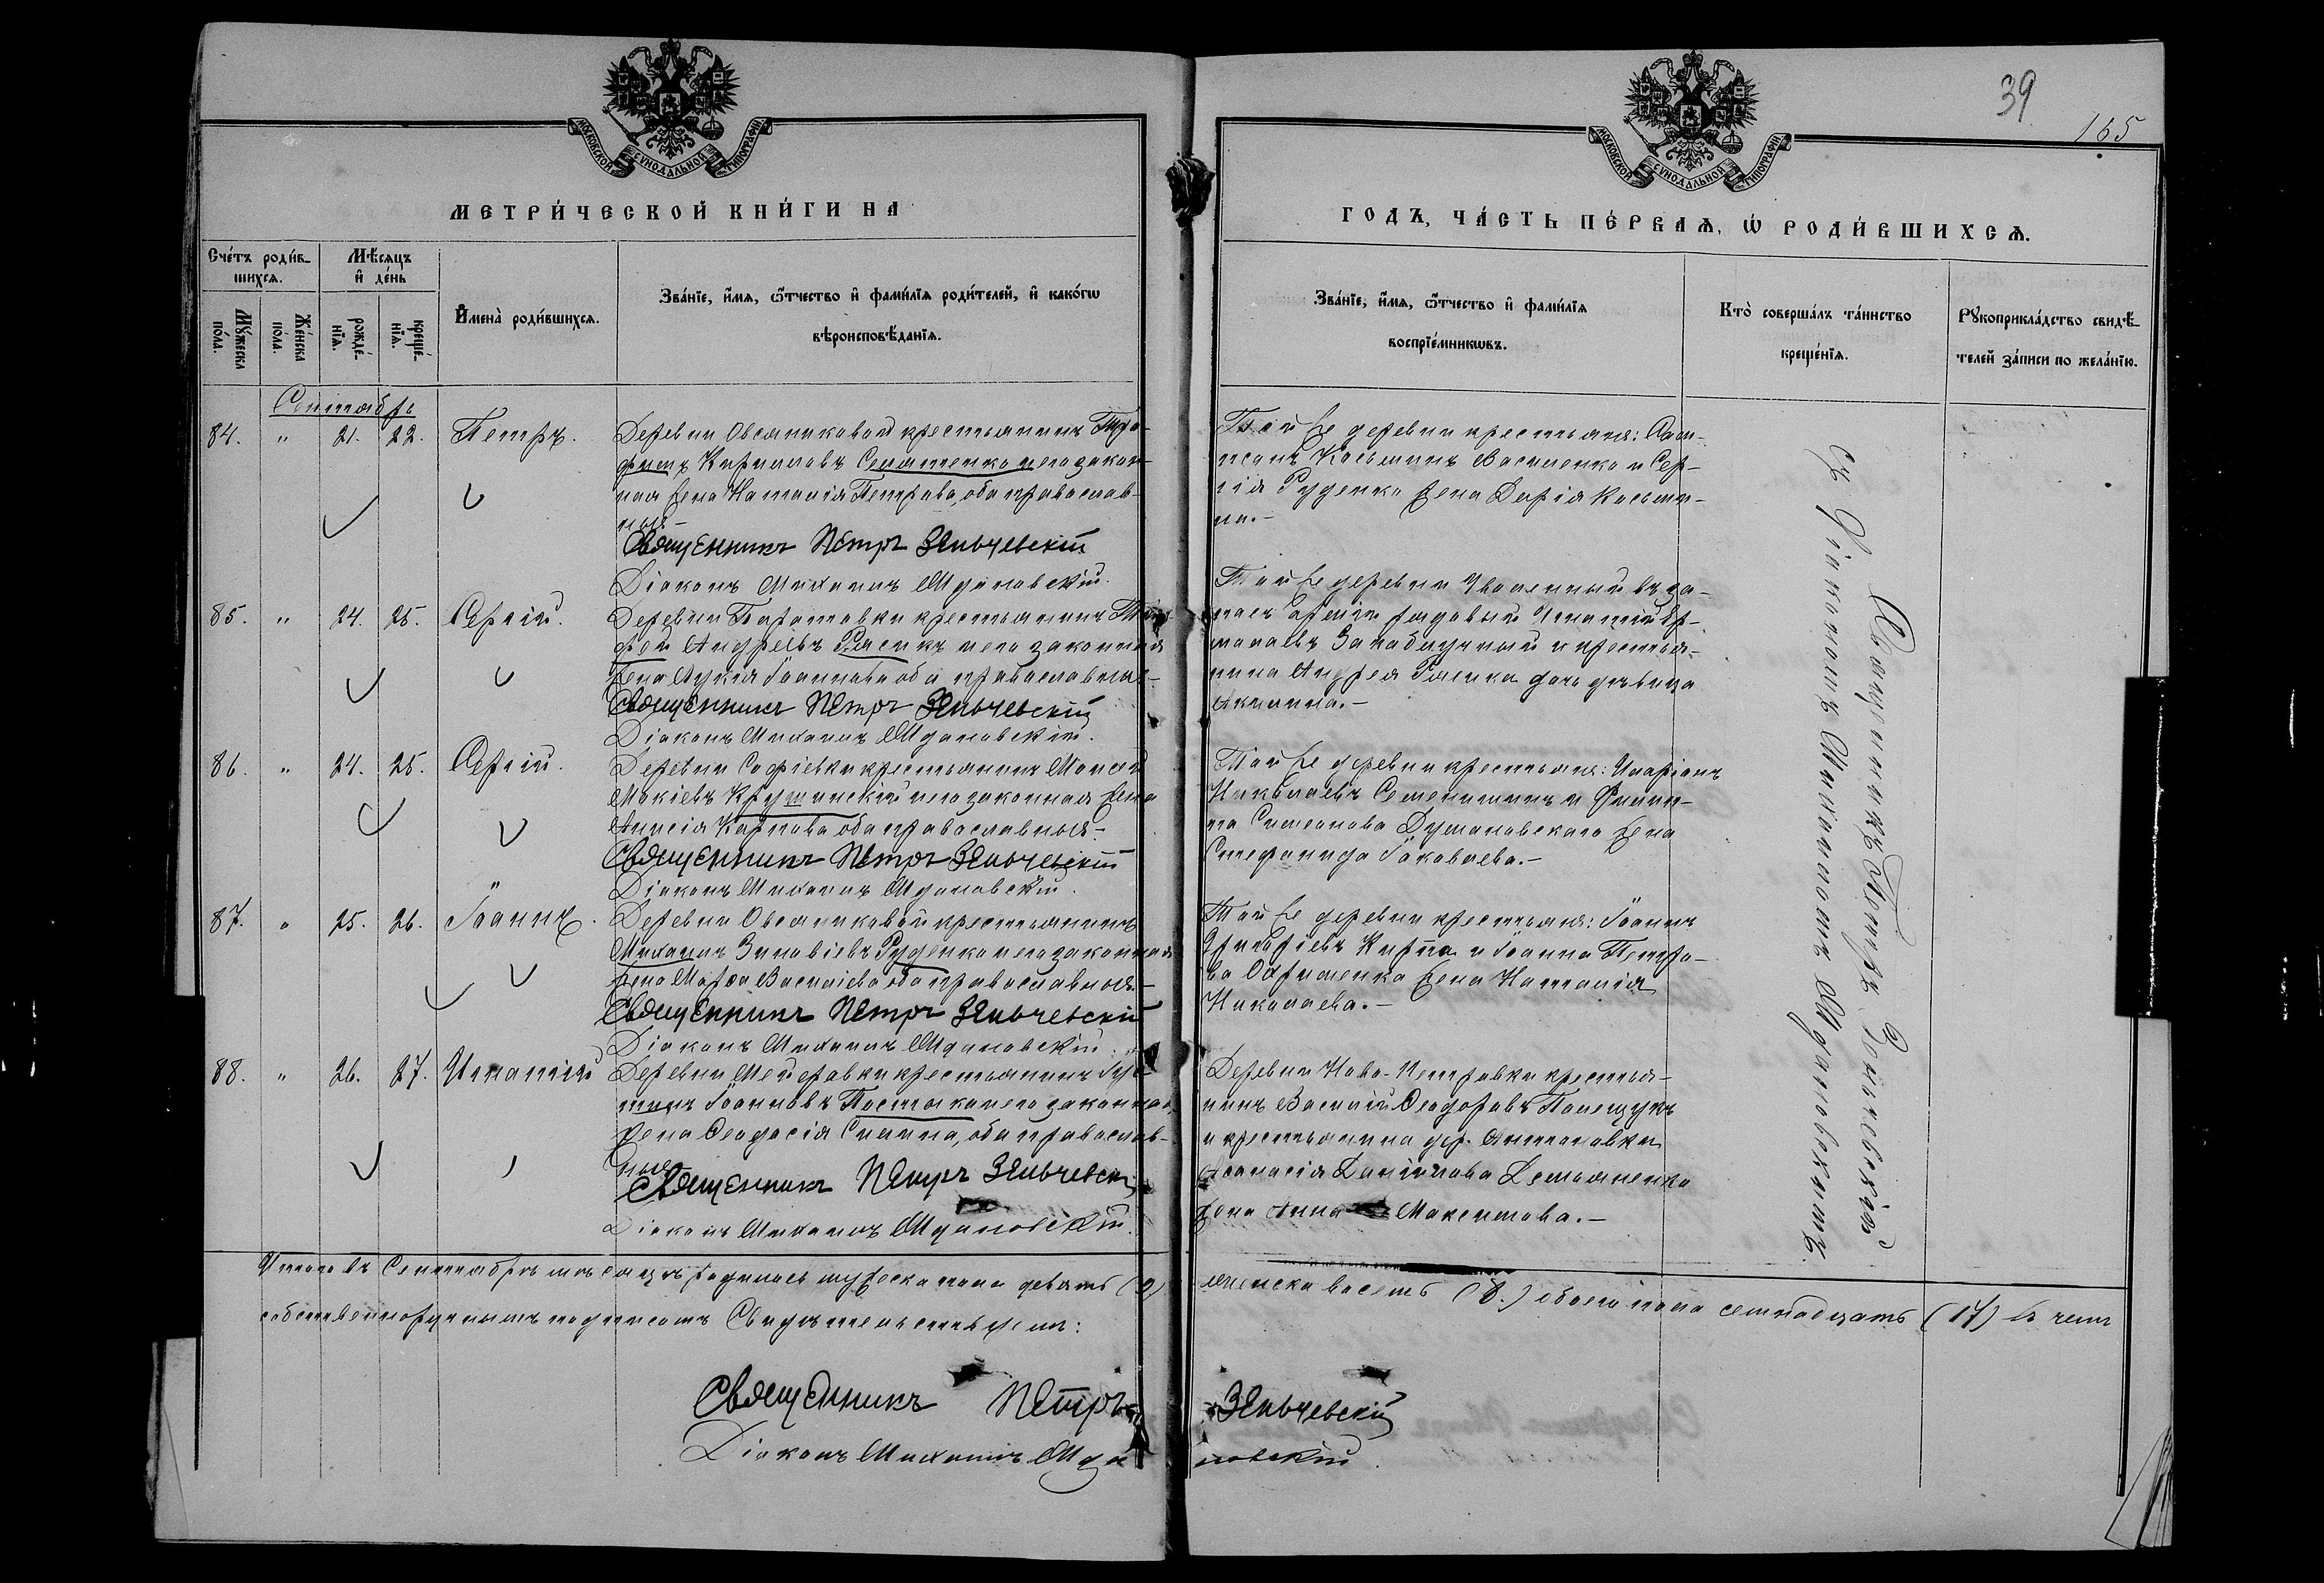 39
165
МОСКОВСКОЙ СѴНОДАЛЬНОЙ ТИПОГРАФІИ
МОСКОВСКОЙ СѴНОДАЛЬНОЙ ТИПОГРАФІИ
МЕТРИ́ЧЕСКОЙ КНИ́ГИ НА
ГОДЪ, ЧА́СТЬ ПЕ́РВАѦ, Ѡ҆ РОДИ́ВШИХСѦ.
Сче́тъ роди́в-
шихсѧ.
Мѣ́сѧцъ
и҆ де́нь
Мꙋ́жеска
по́ла.
Же́нска
по́ла.
рожде́-
нїѧ.
креще́-
нїѧ.
И҆мена̀ роди́вшихсѧ.
Зва́нїе, и҆́мѧ, ѻ҆́тчество и҆ фами́лїѧ роди́телей, и҆ како́гѡ
вѣроисповѣ́данїѧ.
Зва́нїе, и҆́мѧ, ѻ҆́тчество и҆ фами́лїѧ
воспрїе́мникѡвъ.
Кто̀ соверша́лъ та́инство
креще́нїѧ.
Рꙋкоприкла́дство свидѣ́-
телей за́писи по жела́нїю.
Сентябрь
84. " 21. 22. Петръ.
Деревни Овсяниковой крестьянинъ Тро-
фимъ Кириловъ и его закон-
ная жена Наталія Петрова, оба православ-
ные-
Священникъ Петръ Зельчевскій
Діаконъ Михаилъ Ждановскій.
Той же деревни крестьяне:
Косьминъ Василенко и Сер-
гія Руденко жена Дарія Косьми-
на.-
85. " 24. 25. Сергій.
Деревни крестьянинъ
Андреевъ и его законная
жена Лукія Іоаннова оба православные-
Священникъ Петръ Зельчевскій
Діаконъ Михаилъ Ждановскій.
Той же деревни Уволенный въ за-
пасъ Арміи рядовый Игнатій Ер-
молаевъ и крестья-
нина Андрея дочь дѣвица
Акилина.-
86. " 24. 25. Сергій.
Деревни Софіевки крестьянинъ Моисей
Мокіевъ Крушинскій и его законная жена
Анисія Карпова оба православные-
Священникъ Петръ Зельчевскій
Діаконъ Михаилъ Ждановскій.
Той же деревни крестьяне: Иларіонъ
Николаевъ и Филип-
па Симеонова Думановскаго жена
Стефанида Іаковлева.-
87. " 25. 26. Іоаннъ.
Деревни Овсяниковой крестьянинъ
Михаилъ Зиновіевъ Руденко и его законная
жена Марѳа Василіева оба православные-
Священникъ Петръ Зельчевскій
Діаконъ Михаилъ Ждановскій.
Той же деревни крестьяне: Іоаннъ
Григоріевъ Кирпа и Іоанна Петро-
ва жена Наталія
Николаева.-
88. " 26. 27. Игнатій
Деревни Мейеровки крестьянинъ Іус-
тинъ Іоанновъ и его законная
жена Ѳеодосія оба православ-
ные-
Священникъ Петръ Зельчевскій
Діаконъ Михаилъ Ждановскій.
Деревни Ново-Петровки крестья-
нинъ Василій Ѳеодоровъ Полещукъ
и крестьянина дер. Антоновки
Аѳанасія Даніилова Демьяненка
жена Анна Максимова.-
Священникъ Петръ Зельчевскій
съ Діакономъ Михаиломъ Ждановскимъ.
Итого въ Сентябрѣ мѣсяцѣ родилось мужеска пола девять (9) женска восемь (8.) обоего пола семнадцать (17) въ чемъ
собственноручнымъ подписомъ Свидѣтельствуемъ:
Священникъ Петръ Зельчевскій
Діаконъ Михаилъ Ждановскій.